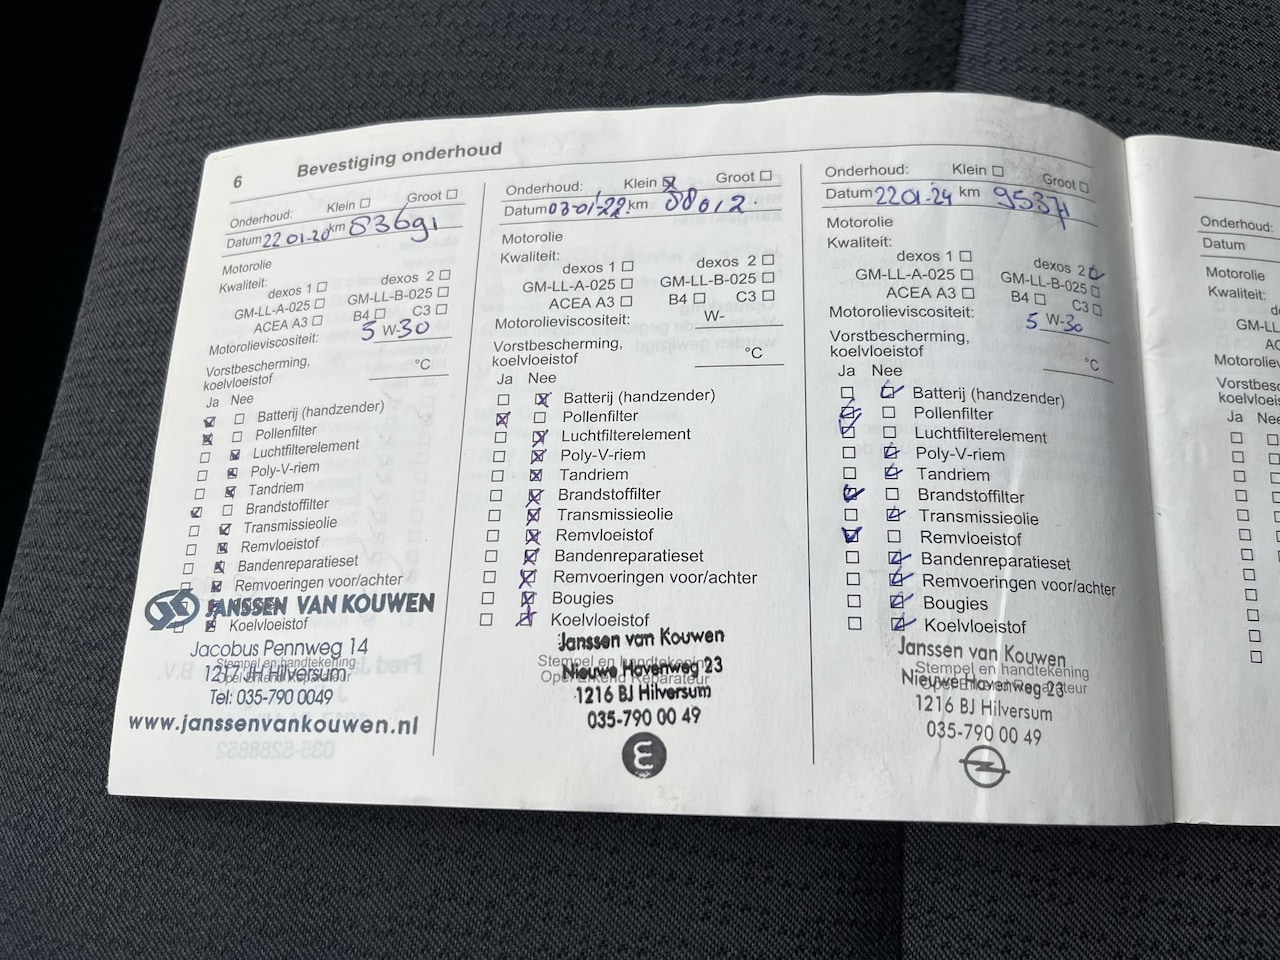 6 Bevestiging onderhoud
Onderhoud: Klein Groot
Datum 22 01-20 km 83691
Motorolie
Kwaliteit:
dexos 1 dexos 2
GM-LL-A-025 GM-LL-B-025
ACEA A3 B4 C3
Motorolieviscositeit: 5 W-30
Vorstbescherming,
koelvloeistof °C
Ja Nee
Batterij (handzender)
Pollenfilter
Luchtfilterelement
Poly-V-riem
Tandriem
Brandstoffilter
Transmissieolie
Remvloeistof
Bandenreparatieset
Remvoeringen voor/achter
Koelvloeistof
JANSSEN VAN KOUWEN
Jacobus Pennweg 14
1217 JH Hilversum
Tel: 035-790 0049
www.janssenvankouwen.nl
Stempel en handtekening
Opel Erkend Reparateur
Onderhoud: Klein Groot
Datum 03-01-22 km 88012
Motorolie
Kwaliteit:
dexos 1 dexos 2
GM-LL-A-025 GM-LL-B-025
ACEA A3 B4 C3
Motorolieviscositeit: W-
Vorstbescherming,
koelvloeistof °C
Ja Nee
Batterij (handzender)
Pollenfilter
Luchtfilterelement
Poly-V-riem
Tandriem
Brandstoffilter
Transmissieolie
Remvloeistof
Bandenreparatieset
Remvoeringen voor/achter
Bougies
Koelvloeistof
Janssen van Kouwen
Stempel en handtekening
Nieuwe Havenweg 23
Opel Erkend Reparateur
1216 BJ Hilversum
035-790 00 49
Onderhoud: Klein Groot
Datum 22 01-24 km 95371
Motorolie
Kwaliteit:
dexos 1 dexos 2
GM-LL-A-025 GM-LL-B-025
ACEA A3 B4 C3
Motorolieviscositeit: 5 W-30
Vorstbescherming,
koelvloeistof °C
Ja Nee
Batterij (handzender)
Pollenfilter
Luchtfilterelement
Poly-V-riem
Tandriem
Brandstoffilter
Transmissieolie
Remvloeistof
Bandenreparatieset
Remvoeringen voor/achter
Bougies
Koelvloeistof
Janssen van Kouwen
Stempel en handtekening
Nieuwe Havenweg 23
Opel Erkend Reparateur
1216 BJ Hilversum
035-790 00 49
Onderhoud:
Datum
Motorolie
Kwaliteit:
GM-LL
AC
Motoroliev
Vorstbesc
koelvloeis
Ja Nee